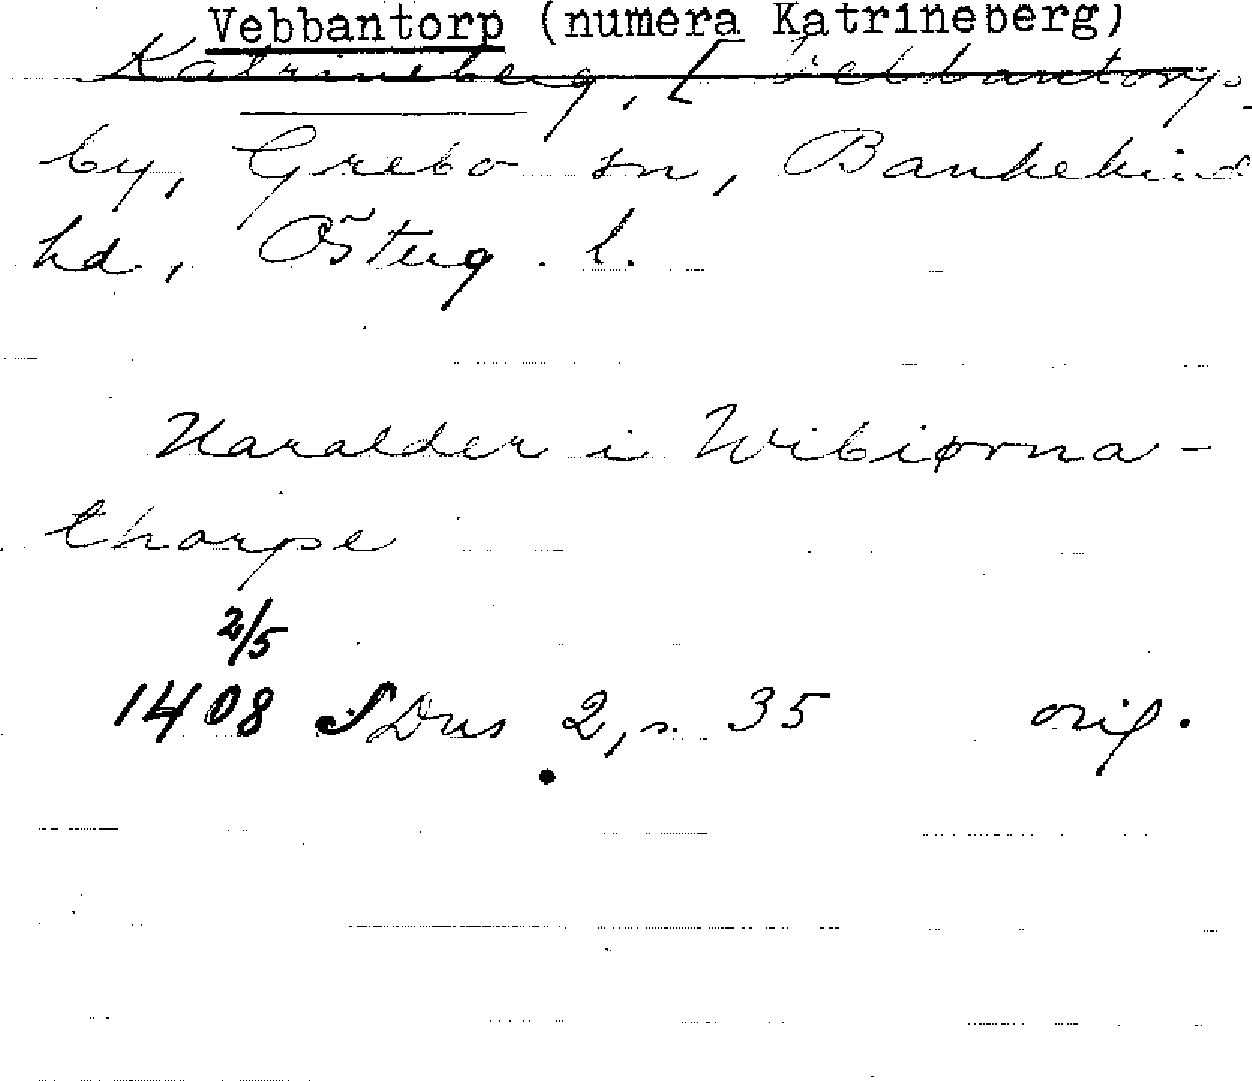 Vebbantorp (numera Katrineberg)
Katrineberg, [ Vebbantorp.
by, Grebo sn, Bankekind
hd, Österg. l.
Haralder i Wibiørna-
thorpe
2/5
1408 SDns 2, s. 35 orig.